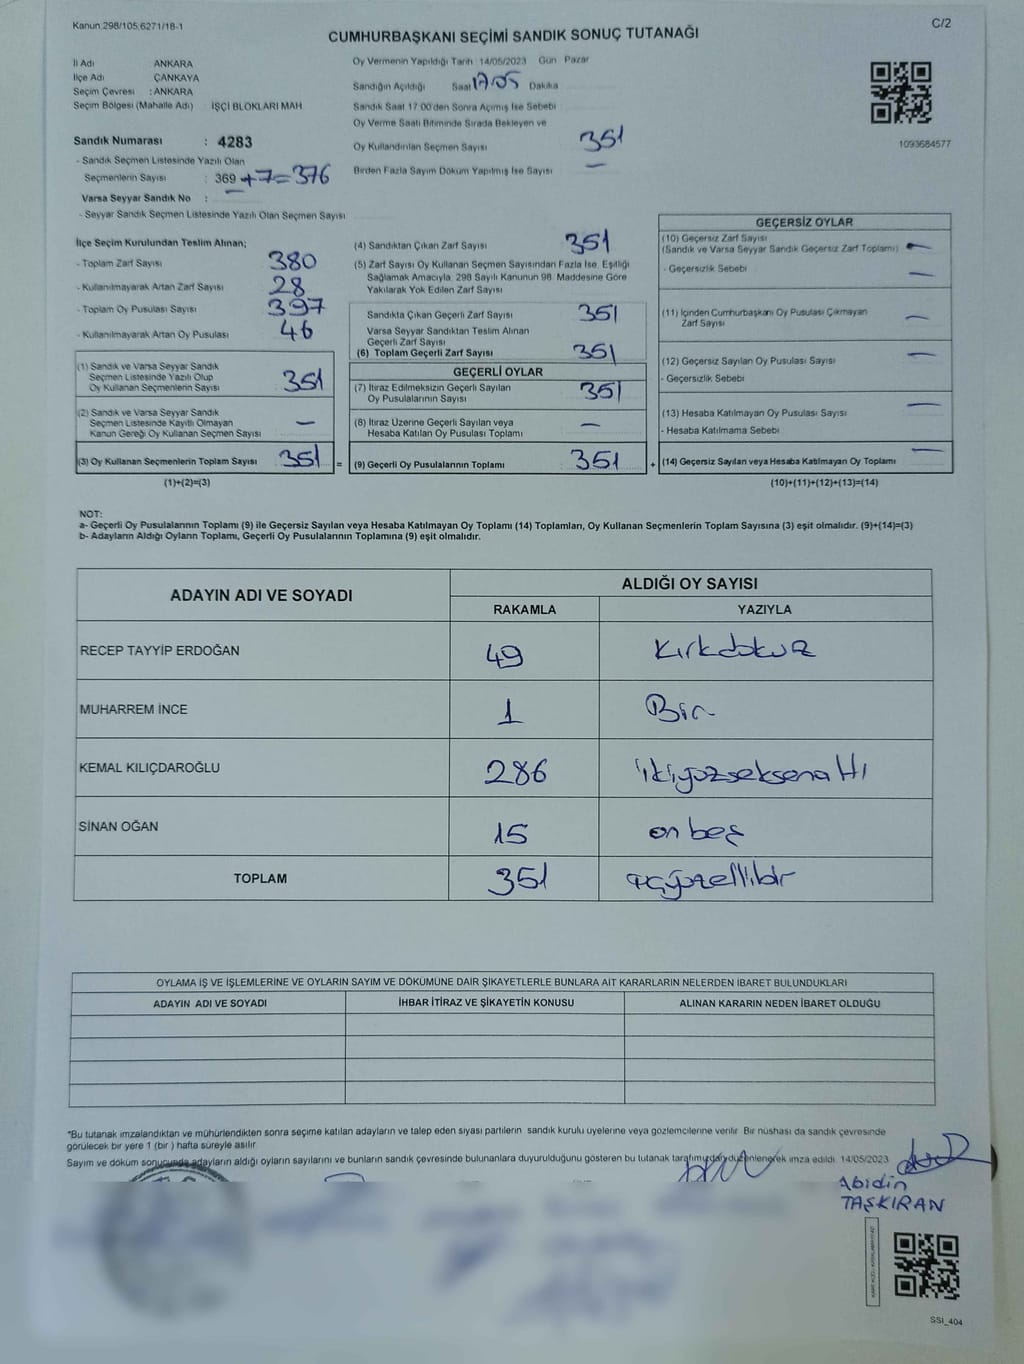 Kanun:298/105,6271/18-1
C/2
CUMHURBAŞKANI SEÇİMİ SANDIK SONUÇ TUTANAĞI
İl Adı ANKARA
İlçe Adı ÇANKAYA
Seçim Çevresi : ANKARA
Seçim Bölgesi (Mahalle Adı) İŞÇİ BLOKLARI MAH.
Sandık Numarası : 4283
- Sandık Seçmen Listesinde Yazılı Olan
Seçmenlerin Sayısı : 369 +7=376
Varsa Seyyar Sandık No : –
- Seyyar Sandık Seçmen Listesinde Yazılı Olan Seçmen Sayısı:
Oy Vermenin Yapıldığı Tarih 14/05/2023 Gün Pazar
Sandığın Açıldığı Saat 17:05 Dakika
Sandık Saat 17:00'den Sonra Açımış İse Sebebi
Oy Verme Saati Bitiminde Sırada Bekleyen ve
Oy Kullandırılan Seçmen Sayısı 351
Birden Fazla Sayım Döküm Yapılmış İse Sayısı –
1093684577
İlçe Seçim Kurulundan Teslim Alınan;
- Toplam Zarf Sayısı 380
- Kullanılmayarak Artan Zarf Sayısı 28
- Toplam Oy Pusulası Sayısı 397
- Kullanılmayarak Artan Oy Pusulası 46
(1) Sandık ve Varsa Seyyar Sandık
Seçmen Listesinde Yazılı Olup
Oy Kullanan Seçmenlerin Sayısı 351
(2) Sandık ve Varsa Seyyar Sandık
Seçmen Listesinde Kayıtlı Olmayan
Kanun Gereği Oy Kullanan Seçmen Sayısı –
(3) Oy Kullanan Seçmenlerin Toplam Sayısı 351 =
(1)+(2)=(3)
(4) Sandıktan Çıkan Zarf Sayısı 351
(5) Zarf Sayısı Oy Kullanan Seçmen Sayısından Fazla İse, Eşitliği
Sağlamak Amacıyla, 298 Sayılı Kanunun 98. Maddesine Göre
Yakılarak Yok Edilen Zarf Sayısı
Sandıkta Çıkan Geçerli Zarf Sayısı 351
Varsa Seyyar Sandıktan Teslim Alınan
Geçerli Zarf Sayısı
(6) Toplam Geçerli Zarf Sayısı 351
GEÇERLİ OYLAR
(7) İtiraz Edilmeksizin Geçerli Sayılan
Oy Pusulalarının Sayısı 351
(8) İtiraz Üzerine Geçerli Sayılan veya
Hesaba Katılan Oy Pusulası Toplamı –
(9) Geçerli Oy Pusulalarının Toplamı 351 +
GEÇERSİZ OYLAR
(10) Geçersiz Zarf Sayısı
(Sandık ve Varsa Seyyar Sandık Geçersiz Zarf Toplamı) –
- Geçersizlik Sebebi –
(11) İçinden Cumhurbaşkanı Oy Pusulası Çıkmayan
Zarf Sayısı –
(12) Geçersiz Sayılan Oy Pusulası Sayısı –
- Geçersizlik Sebebi
(13) Hesaba Katılmayan Oy Pusulası Sayısı –
- Hesaba Katılmama Sebebi
(14) Geçersiz Sayılan veya Hesaba Katılmayan Oy Toplamı –
(10)+(11)+(12)+(13)=(14)
NOT:
a- Geçerli Oy Pusulalarının Toplamı (9) ile Geçersiz Sayılan veya Hesaba Katılmayan Oy Toplamı (14) Toplamları, Oy Kullanan Seçmenlerin Toplam Sayısına (3) eşit olmalıdır. (9)+(14)=(3)
b- Adayların Aldığı Oyların Toplamı, Geçerli Oy Pusulalarının Toplamına (9) eşit olmalıdır.
ADAYIN ADI VE SOYADI
ALDIĞI OY SAYISI
RAKAMLA YAZIYLA
RECEP TAYYİP ERDOĞAN 49 Kırkdokuz
MUHARREM İNCE 1 Bir
KEMAL KILIÇDAROĞLU 286 ikiyüzseksenaltı
SİNAN OĞAN 15 on beş
TOPLAM 351 üçyüzellibir
OYLAMA İŞ VE İŞLEMLERİNE VE OYLARIN SAYIM VE DÖKÜMÜNE DAİR ŞİKAYETLERLE BUNLARA AİT KARARLARIN NELERDEN İBARET BULUNDUKLARI
ADAYIN ADI VE SOYADI İHBAR İTİRAZ VE ŞİKAYETİN KONUSU ALINAN KARARIN NEDEN İBARET OLDUĞU
*Bu tutanak imzalandıktan ve mühürlendikten sonra seçime katılan adayların ve talep eden siyasi partilerin sandık kurulu üyelerine veya gözlemcilerine verilir. Bir nüshası da sandık çevresinde
görülecek bir yere 1 (bir ) hafta süreyle asılır.
Sayım ve döküm sonucunda adayların aldığı oyların sayılarını ve bunların sandık çevresinde bulunanlara duyurulduğunu gösteren bu tutanak tarafımızdan düzenlenerek imza edildi. 14/05/2023
Abidin
TAŞKIRAN
SSİ_404